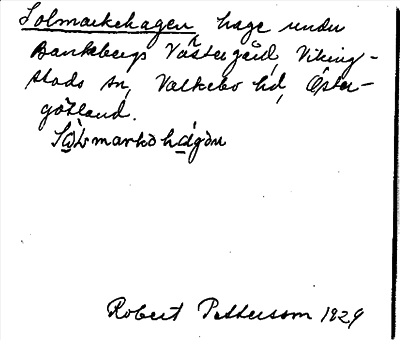 Solmarkehagen hage under
Bankebergs Västergård, Viking-
stads sn, Valkebo hd, Öster-
götland.
Robert Pettersson 1929